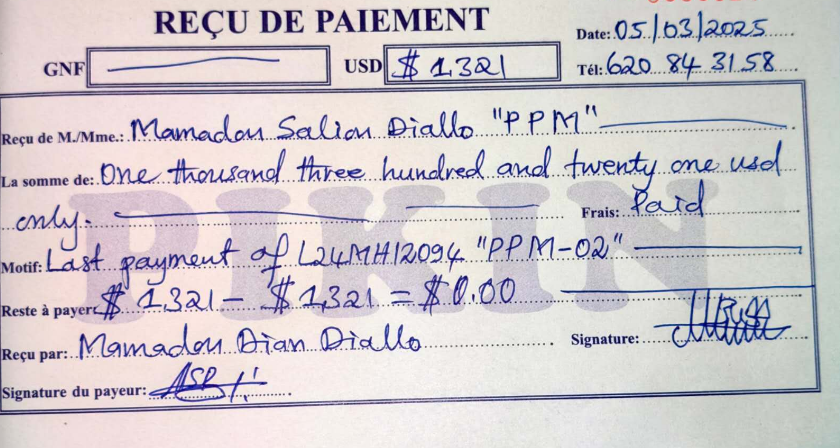 REÇU DE PAIEMENT
Date: 05/03/2025
GNF USD $ 1,321
Tél: 620 84 31 58
Reçu de M./Mme.: Mamadou Saliou Diallo "PPM"
La somme de: One thousand three hundred and twenty one usd
only. Frais: Paid
Motif: Last payment of L24MH12094 "PPM-02"
Reste à payer: $ 1,321 - $ 1,321 = $ 0.00
Reçu par: Mamadou Dian Diallo Signature:
Signature du payeur:
PIKIN